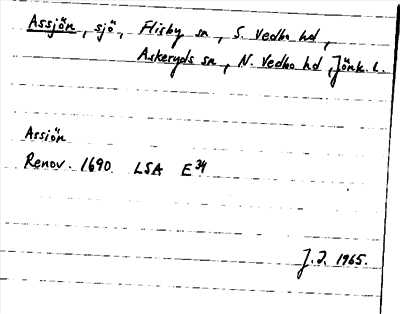 Assjön, sjö, Flisby sn, S. Vedbo hd,
Askeryds sn, N. Vedbo hd, Jönk. l.
Assiön
Renov. 1690. LSA E34
J.I. 1965.